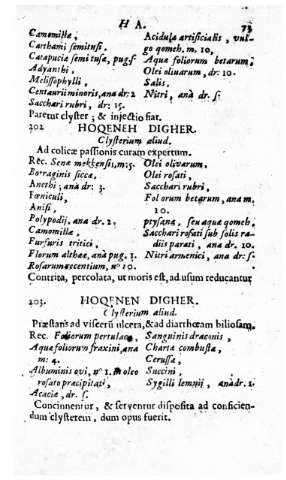 H A. 73
Camomillæ,
Carthami semitusi.
Catapuciæ semitusæ, pug.ß
Adyanthi,
Melissophylli,
Centaurii minoris, ana dr: 2
Sacchari rubri, dr: 15.
Acidulæ artificialis, vul-
go qomeh. m. 10,
Aquæ foliorum betarum,
Olei olivarum, dr: 10.
Salis.
Nitri, ana dr. ß:
Paretur clyster; & injectio fiat.
202 HOQENEH DIGHER.
Clysterium aliud.
Ad colicæ passionis curam expertum.
Rec. Senæ mekkensis, m:5.
Borraginis siccæ,
Anethi; ana dr: 3.
Fœniculi,
Anisi,
Polypodij, ana dr. 2.
Camomillæ,
Furfuris tritici,
Florum altheæ, ana pug. 1.
Rosarum recentium, nº 10.
Olei olivarum.
Olei rosati,
Sacchari rubri,
Foliorum betarum, ana m.
10.
ptysanæ, seu aquæ qomeh.
Sacchari rosati sub solis ra-
diis parati, ana dr. 10.
Nitri armenici, ana dr: ß.
Contrita, percolata, ut moris est, ad usum reducantur
203. HOQENEN DIGHER.
Clysterium aliud.
Præstans ad viscerū ulcera, & ad diarrhœam biliosam.
Rec. Foliorum pertulacæ,
Aquæ foliorum fraxini, ana
m: 4.
Albuminis ovi, nº 1. in oleo
rosato præcipitati,
Acaciæ, dr. ß.
Sanguinis draconis,
Chartæ combustæ,
Cerussæ,
Succini,
Sygilli lemnij, ana dr. 2.
Concinnentur, & serventur disposita ad conficien-
dum clystetem, dum opus fuerit.